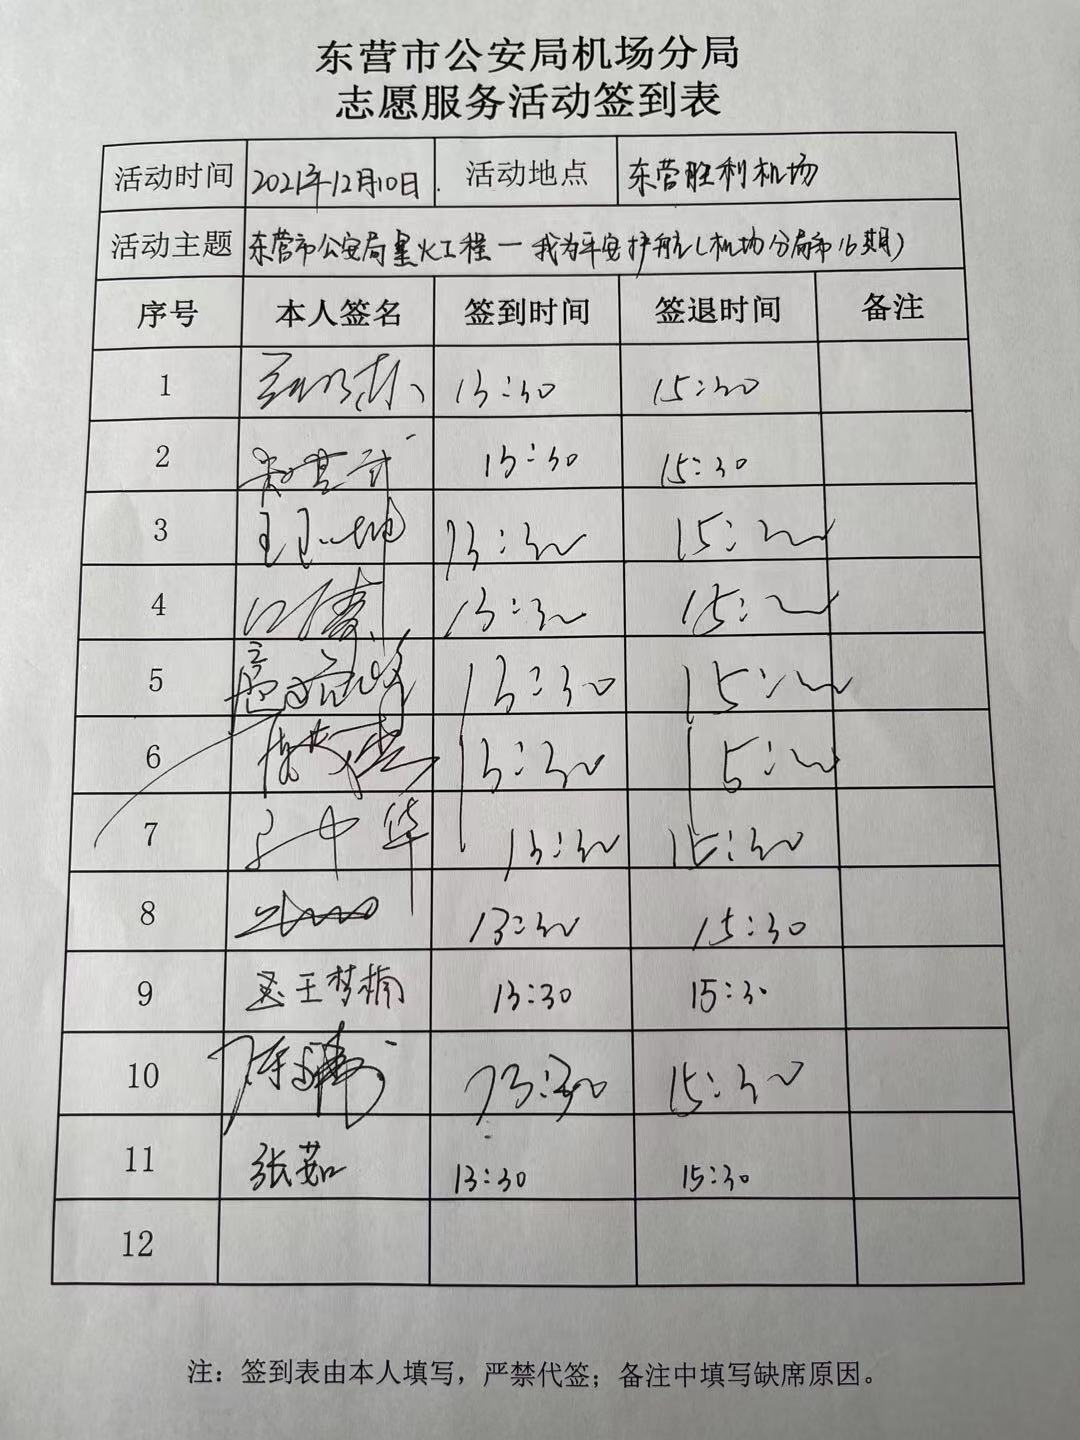 东营市公安局机场分局
志愿服务活动签到表
活动时间 2021年12月10日. 活动地点 东营胜利机场
活动主题 东营市公安局星火工程一我为平安护航(机场分局第16期)
序号 本人签名 签到时间 签退时间 备注
1 13:30 15:30
2 13:30 15:30
3 13:30 15:30
4 13:30 15:30
5 13:30 15:30
6 13:30 15:30
7 中华 13:30 15:30
8 13:30 15:30
9 王梦楠 13:30 15:30
10 13:30 15:30
11 张茹 13:30 15:30
12
注：签到表由本人填写，严禁代签；备注中填写缺席原因。